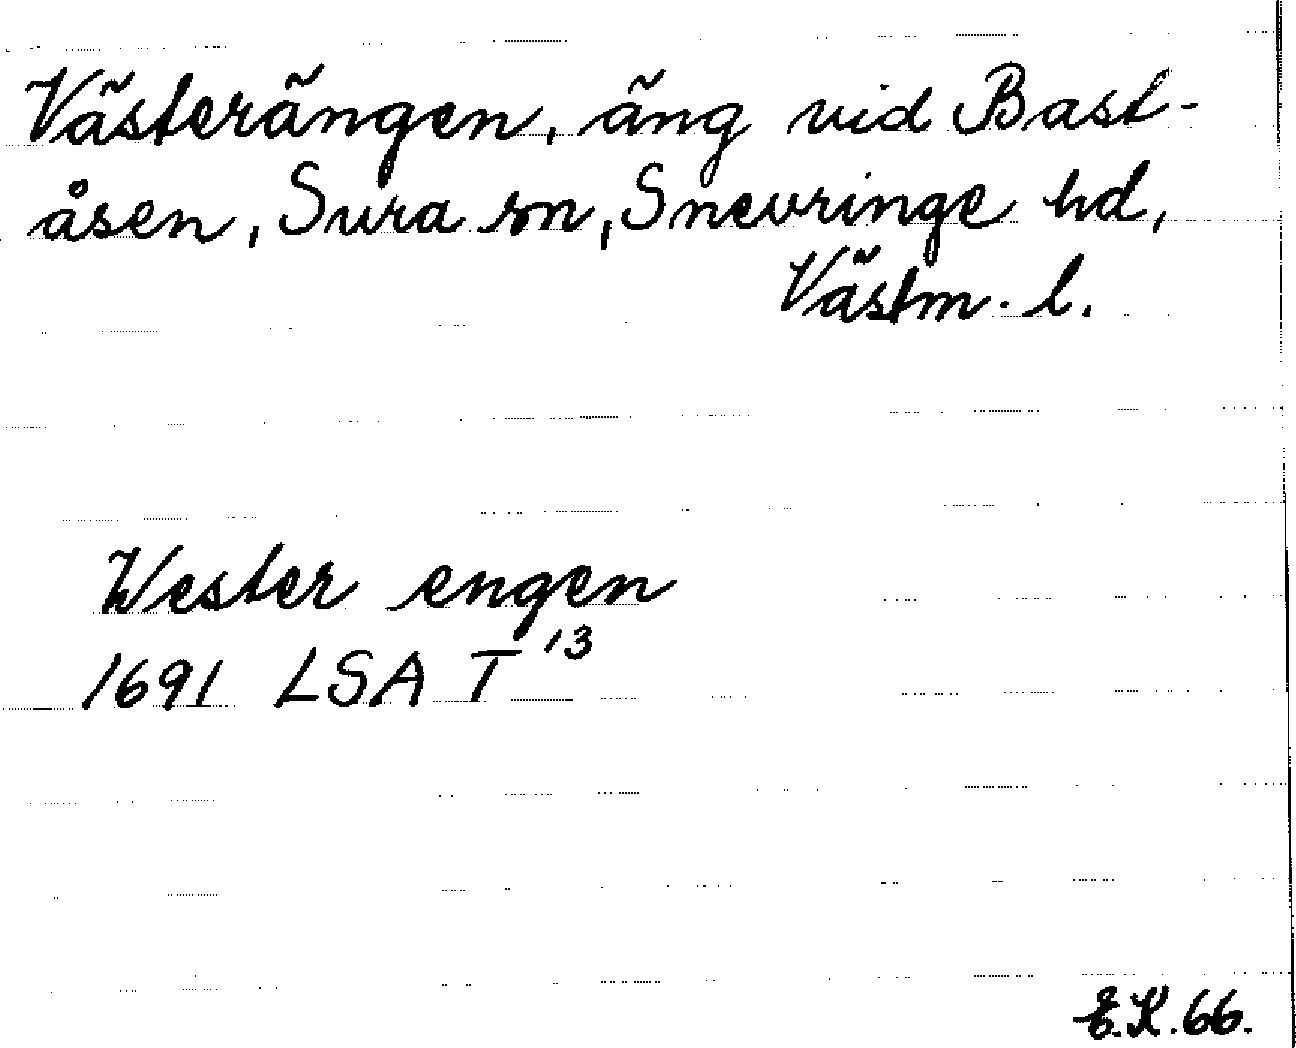 Västerängen, äng vid Bast-
åsen, Sura sn, Snevringe hd,
Västm. l.
Wester engen
1691 LSA T 13
E.K.66.